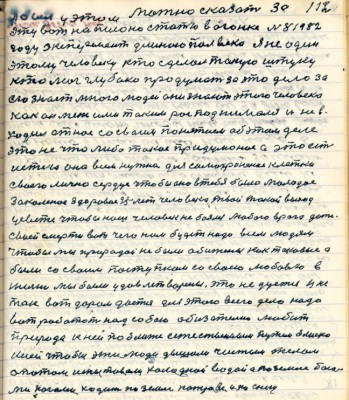 этом можно сказать за 112
Эту вот написано статью в огонке N 8 1982
году эксперемент длиною пол века Я не один
этому человеку кто сделал такую штуку
кто мог глубоко продумать за это дело за
его знает много людей они знают этого человека
как он мен ими таким рос поднимался и не в
ходит от нас со своим понятием об этом деле
это не что либо такое придуманое а это ест
истена она всем нужна для самохронение клетки
своего лично сердце чтобы оно в тебя было молодое
закаленое здоровае 25 лет человека твой такой выход
цевети чтобы наш человек не боялся любого врага даж
своей смерти вот чего нам будет надо всем людям
чтобы мы природой не были обижены как таковые а
были со своим поступком со своею любовью в
жизни мы были удовлетворены, это не дуется и не
так вот даром дается для этого всего дело надо
вот работат над собою обизательно любит
природа к ней по ближе естественным путем близко
к ней чтобы эти люди дышали чистым телом
а потом испытовали холодной водой а по земле боса
ми ногами ходит по земле по траве и по снегу